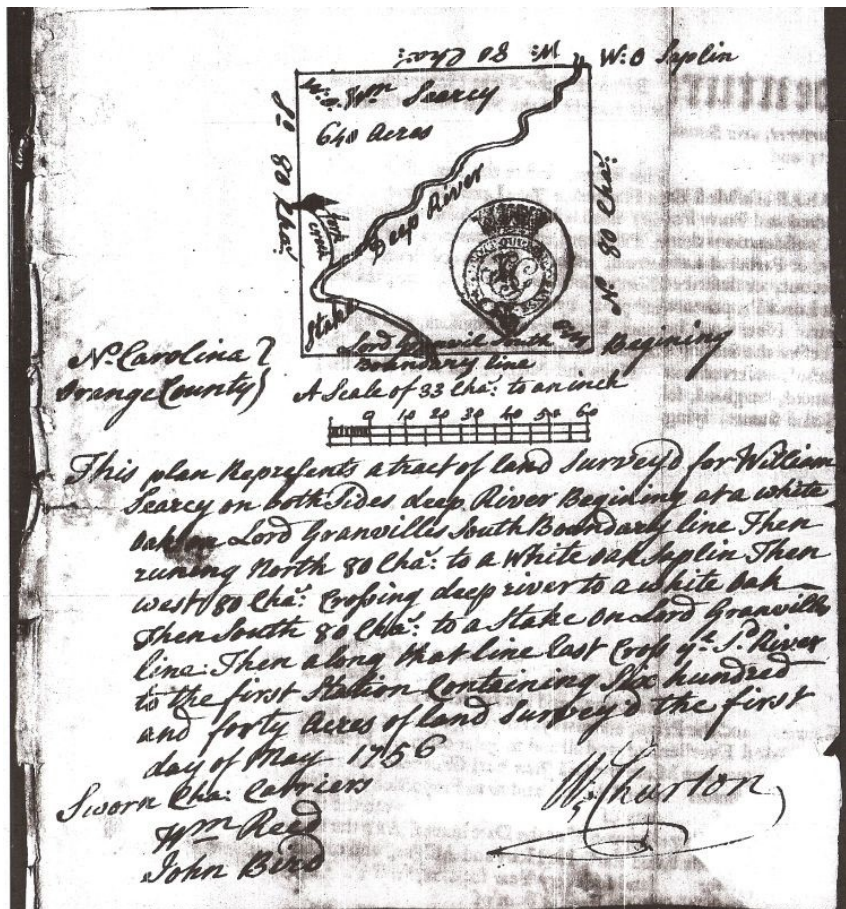 W: 80 Cha:
W: O Saplin
W: O: Wm Searcy
640 Acres
So 80 Cha:
fork creek
Deep River
No 80 Cha:
Stake
Lord Granvils South
Boundary line
Begining
No. Carolina }
Orange County }
A Scale of 33 Cha: to an inch
0 10 20 30 40 50 60
This plan Represents a tract of land Survey'd for William
Searcy on both Sides deep River Begining at a white
Oak on Lord Granvilles South Boundary line Then
runing North 80 Cha: to a White oak Saplin Then
west 80 Cha: Crossing deep river to a white Oak
Then South 80 Cha: to a Stake on Lord Granvills
line: Then along that line East Cross ye. Sd. River
to the first Station Containing Six hundred
and forty Acres of land Survey'd the first
day of May 1756
Sworn Cha: Carriers
Wm Reed
John Bird
W Churton